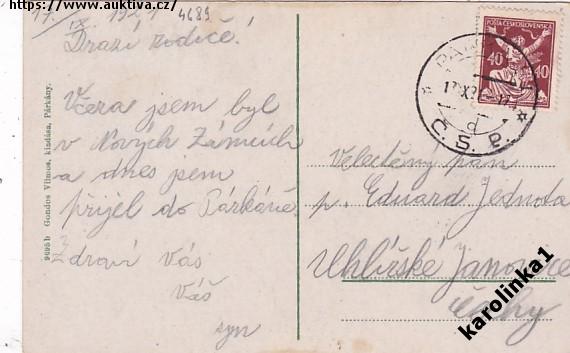 https://www.auktiva.cz/
4689
Drazí rodiče!
Včera jsem byl
v Nových Zámcích
a dnes jsem
přijel do Párkáně.
Zdraví Vás
Váš
syn
9695b Gondos Vilmos, kiadása, Párkány.
POŠTA ČESKOSLOVENSKÁ
40 40
Č. S. P.
d
Velectěný pan
p. Eduard Jednota
Uhlířské Janovice
Čechy
karolinka1